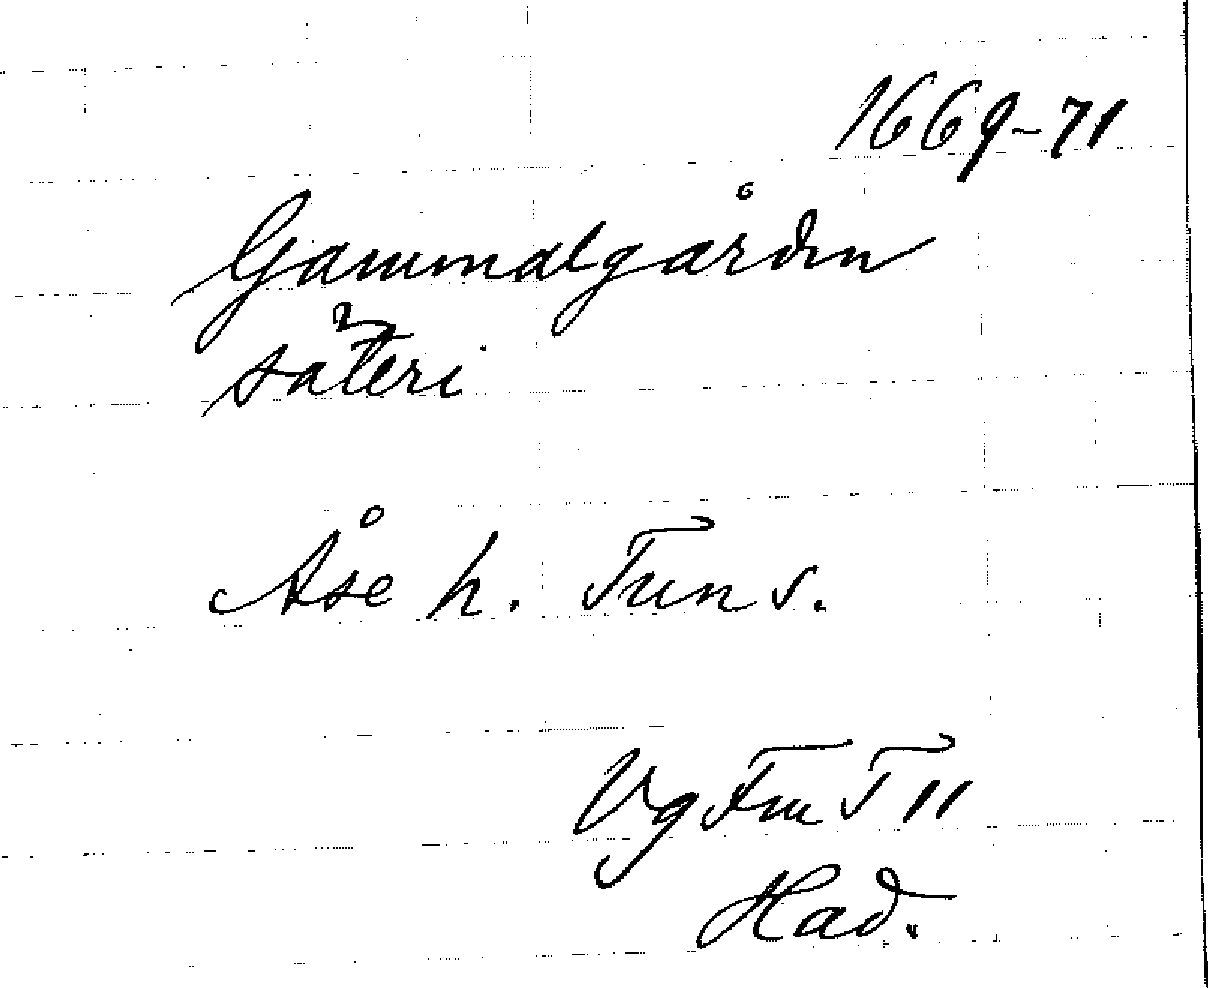 1669-71
Gammalgården
säteri
Åse h. Tun s.
Vg Fm T 11
Had.